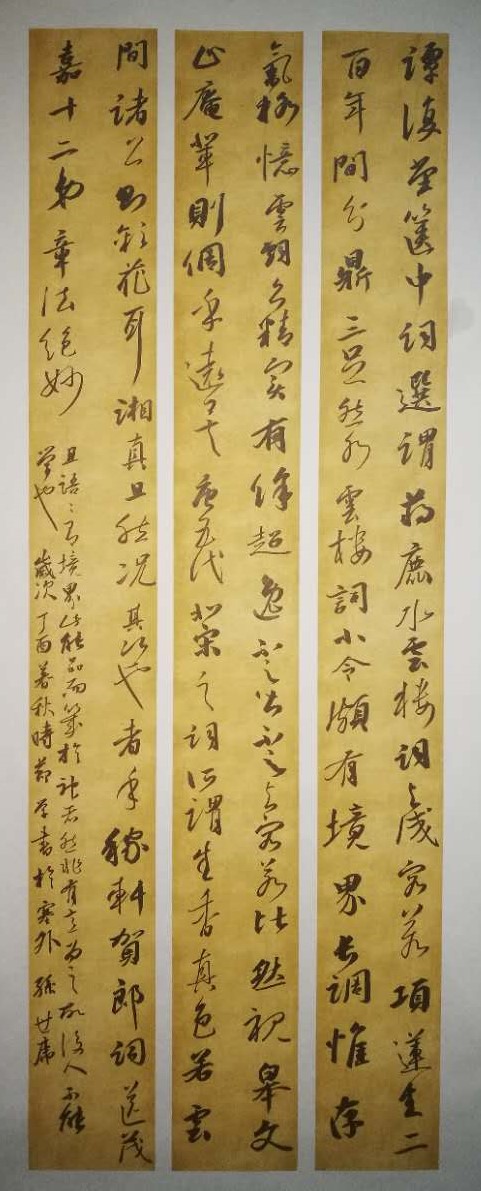 譚復堂箧中詞選謂蔣鹿水雲樓詞與成容若項蓮生二
百年間分鼎三足然水雲樓詞小令頗有境界長調惟存
氣格憶雲詞亦精实有餘超逸不足皆不足与容若比然視皋文
止庵輩則倜乎遠矣唐五代北宋之詞所謂生香真色若雲
間諸公則綵花耳湘真且然况其次也者乎稼軒賀郎詞送茂
嘉十二弟章法絕妙
且語語有境界此能品而幾於神者然非有意為之故後人不能
學也 歲次丁酉暮秋時節草書於塞外 孫